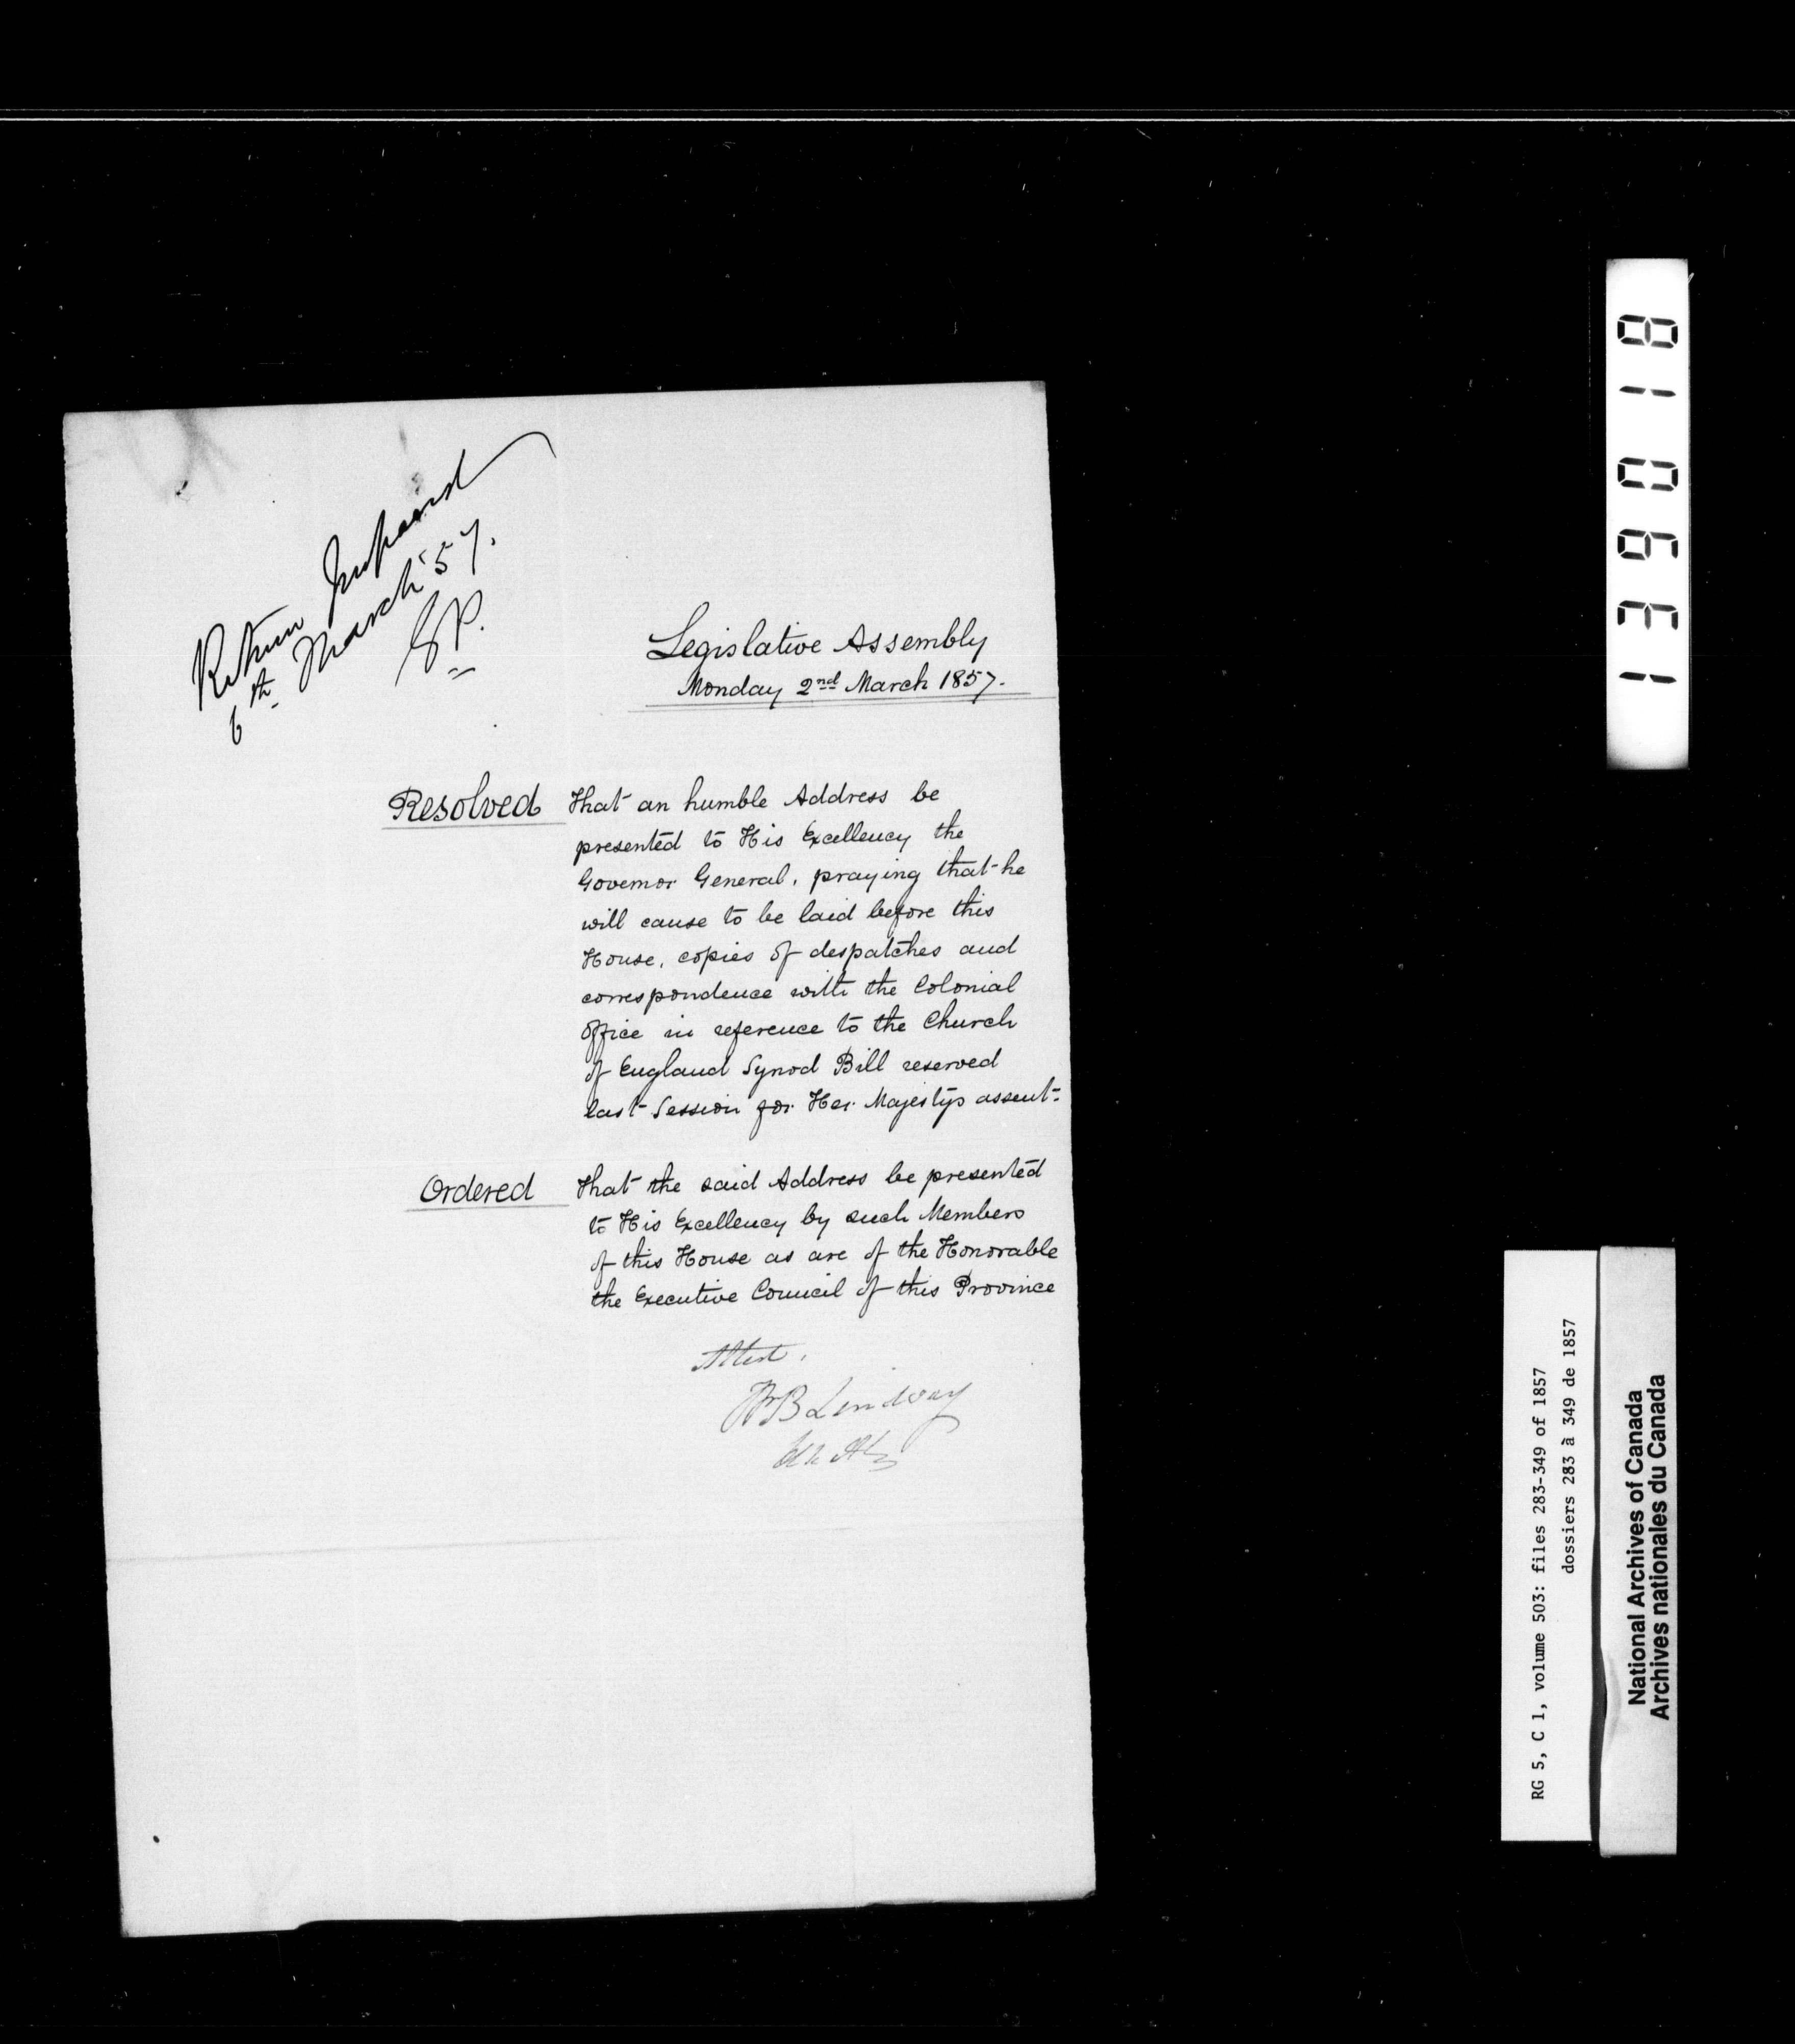 Return prepared
6th March '57.
GP.
Legislative Assembly
Monday 2nd March 1857.
Resolved That an humble Address be
presented to His Excellency the
Governor General, praying that he
will cause to be laid before this
House, copies of despatches and
correspondence with the Colonial
Office in reference to the Church
of England Synod Bill reserved
last Session for Her Majestys assent.
Ordered That the said Address be presented
to His Excellency by such Members
of this House as are of the Honorable
the Executive Council of this Province
Attest.
WB Lindsay
Clk Assy
139018
RG 5, C 1, volume 503: files 283-349 of 1857
dossiers 283 à 349 de 1857
National Archives of Canada
Archives nationales du Canada